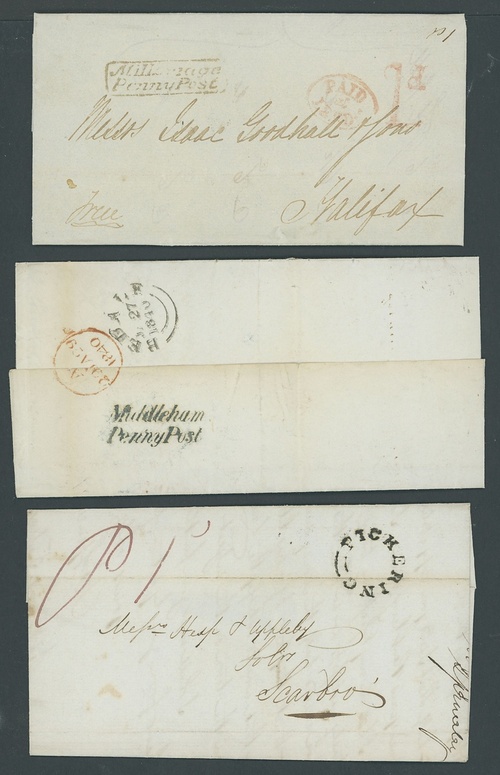 Penny Post
PAID
1d
Messrs Isaac Goodhall & Sons
Free
Halifax
1840
1840
Middleham
Penny Post
PICKERING
P 1
Messrs Hesp & Appleby
Solrs
Scarbro'